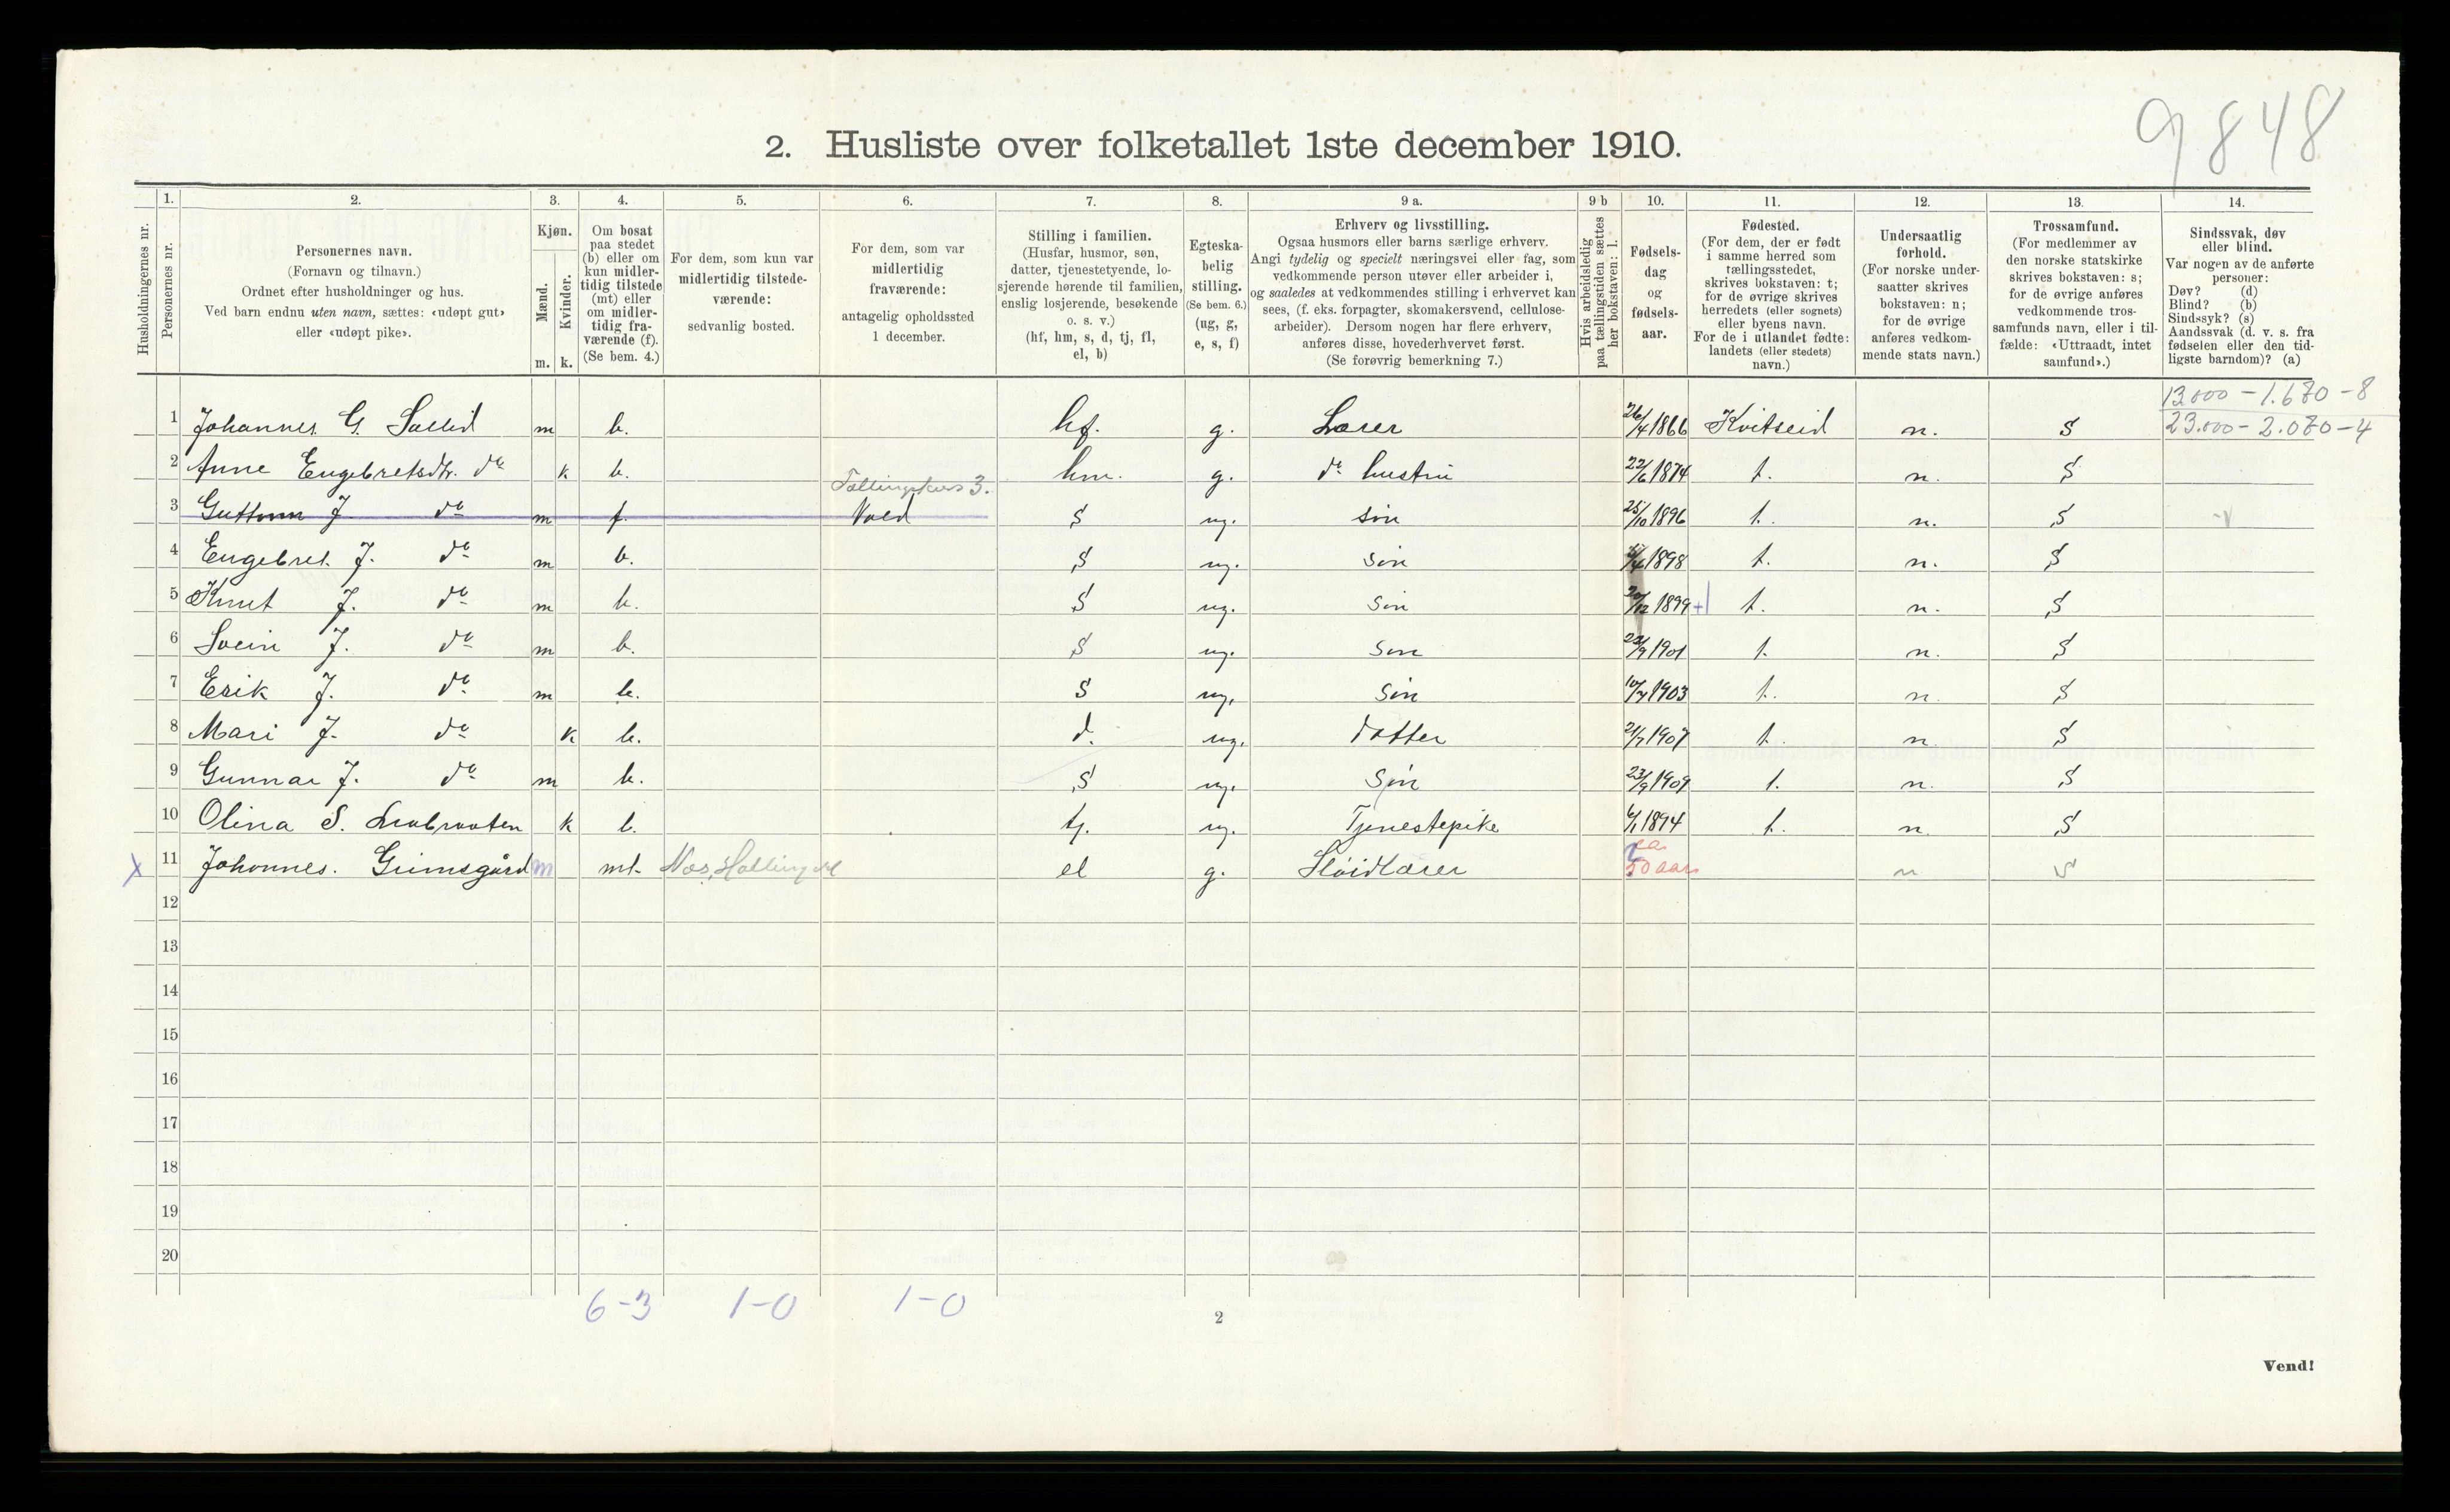 9848
2. Husliste over folketallet 1ste december 1910.
Husholdningernes nr.
1. Personernes nr.
2. Personernes navn. (Fornavn og tilnavn.) Ordnet efter husholdninger og hus. Ved barn endnu uten navn, sættes: «udøpt gut» eller «udøpt pike».
3. Kjøn. Mænd. m. Kvinder. k.
4. Om bosat paa stedet (b) eller om kun midlertidig tilstede (mt) eller om midlertidig fraværende (f). (Se bem. 4.)
5. For dem, som kun var midlertidig tilstedeværende: sedvanlig bosted.
6. For dem, som var midlertidig fraværende: antagelig opholdssted 1 december.
7. Stilling i familien. (Husfar, husmor, søn, datter, tjenestetyende, losjerende hørende til familien, enslig losjerende, besøkende o. s. v.) (hf, hm, s, d, tj, fl, el, b)
8. Egteskabelig stilling. (Se bem. 6.) (ug, g, e, s, f)
9 a. Erhverv og livsstilling. Ogsaa husmors eller barns særlige erhverv. Angi tydelig og specielt næringsvei eller fag, som vedkommende person utøver eller arbeider i, og saaledes at vedkommendes stilling i erhvervet kan sees, (f. eks. forpagter, skomakersvend, cellulosearbeider). Dersom nogen har flere erhverv, anføres disse, hovederhvervet først. (Se forøvrig bemerkning 7.)
9 b Hvis arbeidsledig paa tællingstiden sættes her bokstaven: l.
10. Fødselsdag og fødselsaar.
11. Fødested. (For dem, der er født i samme herred som tællingsstedet, skrives bokstaven: t; for de øvrige skrives herredets (eller sognets) eller byens navn. For de i utlandet fødte: landets (eller stedets) navn.)
12. Undersaatlig forhold. (For norske undersaatter skrives bokstaven: n; for de øvrige anføres vedkommende stats navn.)
13. Trossamfund. (For medlemmer av den norske statskirke skrives bokstaven: s; for de øvrige anføres vedkommende trossamfunds navn, eller i tilfælde: «Uttraadt, intet samfund».)
14. Sindssvak, døv eller blind. Var nogen av de anførte personer: Døv? (d) Blind? (b) Sindssyk? (s) Aandssvak (d. v. s. fra fødselen eller den tidligste barndom)? (a)
13.000 - 1.680 - 8
1 Johannes G. Sællid m b. hf. g. Lærer 26/4 1866 Kvitseid n. S 23.000 - 2.080 - 4
2 Anne Engebretsdtr. do k b. hm. g. do hustru 22/6 1874 t. n. S
3 Guttorm J. do m f. Tællingskres 3. Vold S ug. søn 25/10 1896 t. n. S
4 Engebret J. do m b. S ug. søn 1898 t. n. S
5 Knut J. do m b. S ug. søn 20/12 1899 t. n. S
6 Svein J. do m b. S ug. søn 1901 t. n. S
7 Erik J. do m b. S ug. søn 1903 t. n. S
8 Mari J. do k b. d. ug. datter 21/7 1907 t. n. S
9 Gunnar J. do m b. S ug. søn 23/9 1909 t. n. S
10 Olina S. k b. tj. ug. Tjenestepike 1894 t. n. S
x 11 Johonnes. Grimsgård m mt. Nes, Hallingdal el g. Sløidlærer ca 50 aar n S
12
13
14
15
16
17
18
19
20
6-3 1-0 1-0
2
Vend!